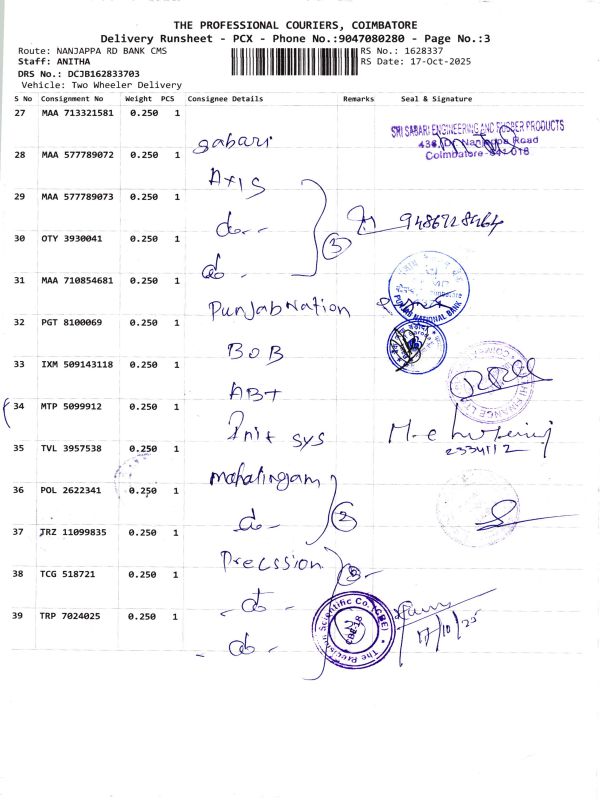 THE PROFESSIONAL COURIERS, COIMBATORE
Delivery Runsheet - PCX - Phone No.:9047080280 - Page No.:3
Route: NANJAPPA RD BANK CMS
RS No.: 1628337
Staff: ANITHA
RS Date: 17-Oct-2025
DRS No.: DCJB162833703
Vehicle: Two Wheeler Delivery
S No Consignment No Weight PCS Consignee Details Remarks Seal & Signature
27 MAA 713321581 0.250 1 Sabari
SRI SABARI ENGINEERING AND RUBBER PRODUCTS
436, Dr. Nanjappa Road
Coimbatore-641 018
28 MAA 577789072 0.250 1 Axis
29 MAA 577789073 0.250 1 do 3 9486728464
30 OTY 3930041 0.250 1 do
31 MAA 710854681 0.250 1 Punjab Nation
PUNJAB NATIONAL BANK
32 PGT 8100069 0.250 1 BOB
33 IXM 509143118 0.250 1 ABT
34 MTP 5099912 0.250 1 Init sys
2334112
35 TVL 3957538 0.250 1 mahalingam
36 POL 2622341 0.250 1 do 2
37 TRZ 11099835 0.250 1 Precssion
38 TCG 518721 0.250 1 do 3
39 TRP 7024025 0.250 1 do
The Precision Scientific Co. (CBE)
17/10/25